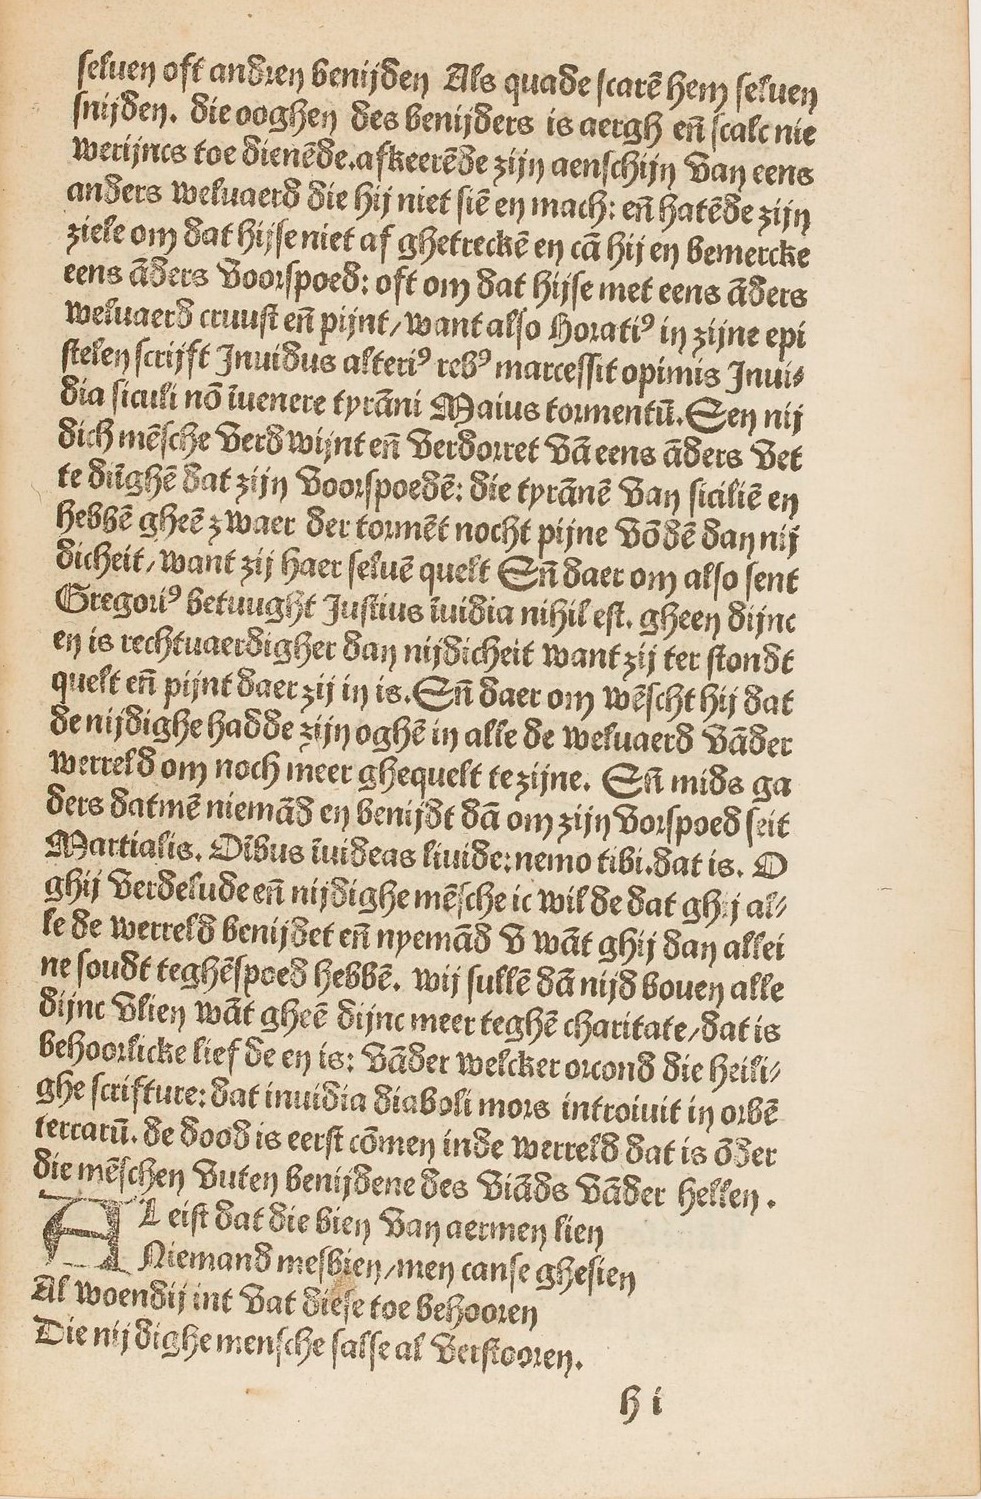 seluen oft andren benijden Als quade scarē hem seluen
snijden. die ooghen des benijders is aergh eñ scalc nie
werijncs toe dienēde.afkeerēde zijn aenschijn van eens
anders weluaerd die hij niet siē en mach: eñ hatēde zijn
ziele om dat hijse niet af ghetreckē en cā hij en bemercke
eens āders voorspoed: oft om dat hijse met eens āders
weluaerd cruust eñ pijnt/want also Horatiꝰ in zijne epi
stelen scrijft Inuidus alteriꝰ rebꝰ marcessit opimis Inui⸗
dia siculi nō īuenere tyrāni Maius tormentū.Een nij
dich mēsche verdwijnt eñ verdorret vā eens āders vet
te dīghē dat zijn voorspoedē: die tyrānē van siciliē en
hebbē gheē zwaer der tormēt nocht pijne vōdē dan nij
dicheit/want zij haer seluē quelt Eñ daer om also sent
Gregoriꝰ betuught Iustius īuidia nihil est. gheen dijnc
en is rechtuaerdigher dan nijdicheit want zij ter stondt
quelt eñ pijnt daer zij in is.Eñ daer om wēscht hij dat
de nijdighe hadde zijn oghē in alle de weluaerd vāder
werreld om noch meer ghequelt te zijne. Eñ mids ga
ders datmē niemād en benijdt dā om zijn vorspoed seit
Martialis. Oībus īuideas liuide:nemo tibi.dat is. O
ghij verdelude eñ nijdighe mēsche ic wil de dat ghij al⸗
le de werreld benijdet eñ nyemād v wāt ghij dan allei
ne soudt teghēspoed hebbē. wij sullē dā nijd bouen alle
dijnc vlien wāt gheē dijnc meer teghē charitate/dat is
behoorlicke lief de en is: vāder welcker orcond die heili⸗
ghe scrifture: dat inuidia diaboli mors introiuit in orbē
terrarū. de dood is eerst cōmen inde werreld dat is ōder
die mēschen vuten benijdene des viāds vāder hellen.
AL eist dat die bien van aermen lien
Niemand mesbien/men canse ghesien
Al woendij int vat diese toe behooren
Die nijdighe mensche salse al verstooren.
h i